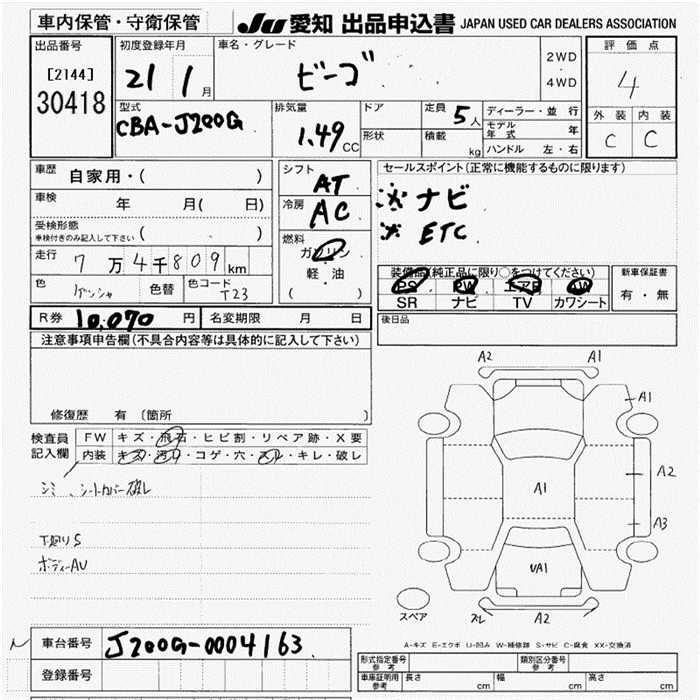 車内保管・守衛保管 JU 愛知 出品申込書 JAPAN USED CAR DEALERS ASSOCIATION
出品番号
[2144]
30418
初度登録年月
21 1 月
車名・グレード
ビーゴ
2WD
4WD
評価点
4
外装 内装
C C
型式
CBA-J200G
排気量
1.49 CC
ドア
形状
定員 5 人
積載 kg
ディーラー・並行
モデル年式 年
ハンドル 左・右
車歴
自家用・( )
車検 年 月( 日)
受検形態
車検付きのみ記入して下さい ( )
走行 7万4千809km
色 色替 色コード T23
シフト AT
冷房 AC
燃料
ガソリン
軽・油
( )
セールスポイント(正常に機能するものに限ります)
※ナビ
※ETC
装備品(純正品に限り○をつけてください)
PS PW エアB AW
SR ナビ TV カワシート
新車保証書
有・無
R券 10,070 円 名変期限 月 日
後日品
注意事項申告欄(不具合内容等は具体的に記入して下さい)
修復歴 有 (箇所 )
検査員記入欄
FW キズ・飛石・ヒビ割・リペア跡・X要
内装 キズ・汚レ・コゲ・穴・スレ・キレ・破レ
シミ、シートカバー破レ
下廻りS
ボディーAU
A2 A1
A1
A2
A1
A3
UA1
スペア
スレ A2
A-キズ E-エクボ U-凹み W-補修跡 S-サビ C-腐食 XX-交換済
車台番号 J200G-0004163
登録番号
形式指定番号 参考 類別区分番号 参考
車庫証明用 参考 長さ cm 幅 cm 高さ cm